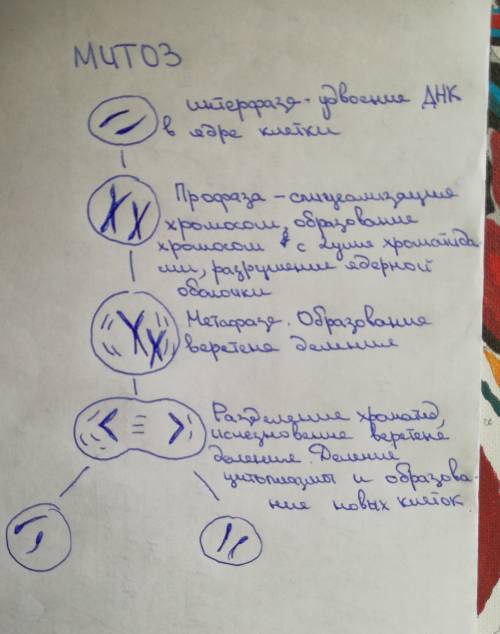 МИТОЗ
интерфаза - удвоение ДНК
в ядре клетки
Профаза - специализация
хромосом, образование
хромосом с двумя хроматида
ми, разрушение ядерной
оболочки
Метафаза. Образование
веретена деления
Разделение хроматид,
исчезновение веретена
деления. Деление
цитоплазмы и образова-
ние новых клеток